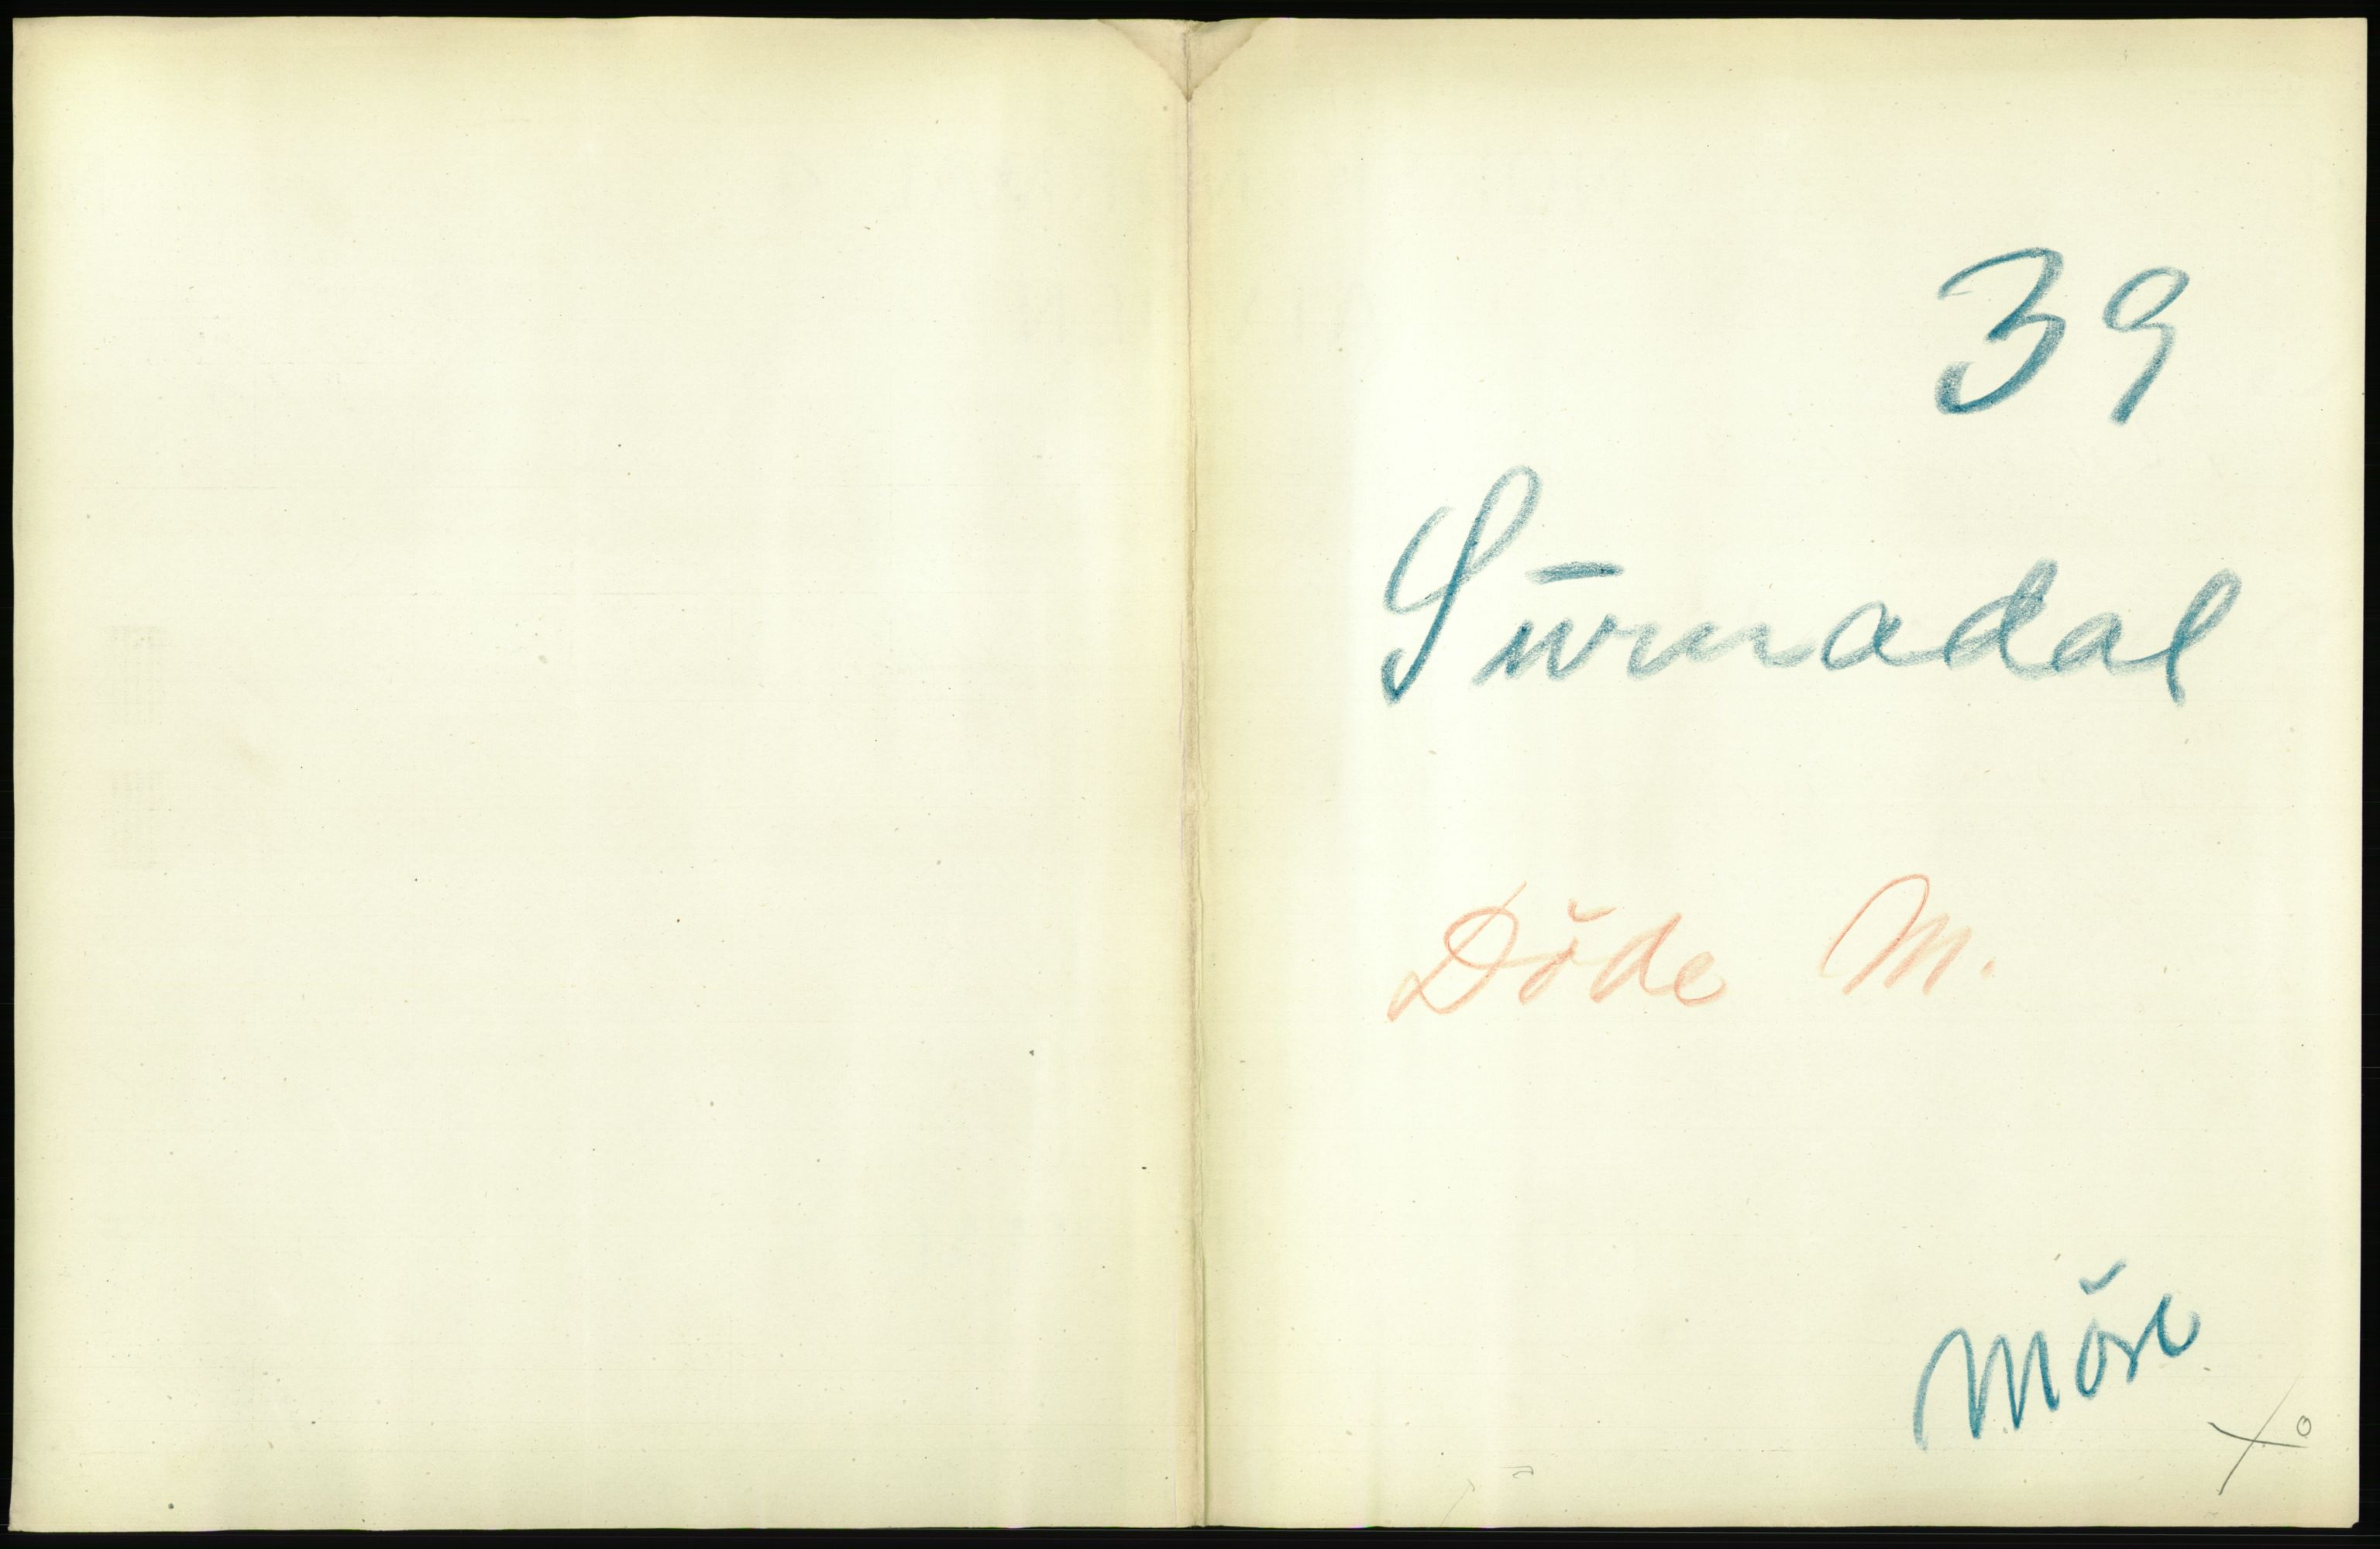 39
Surnadal
Døde M.
Møre